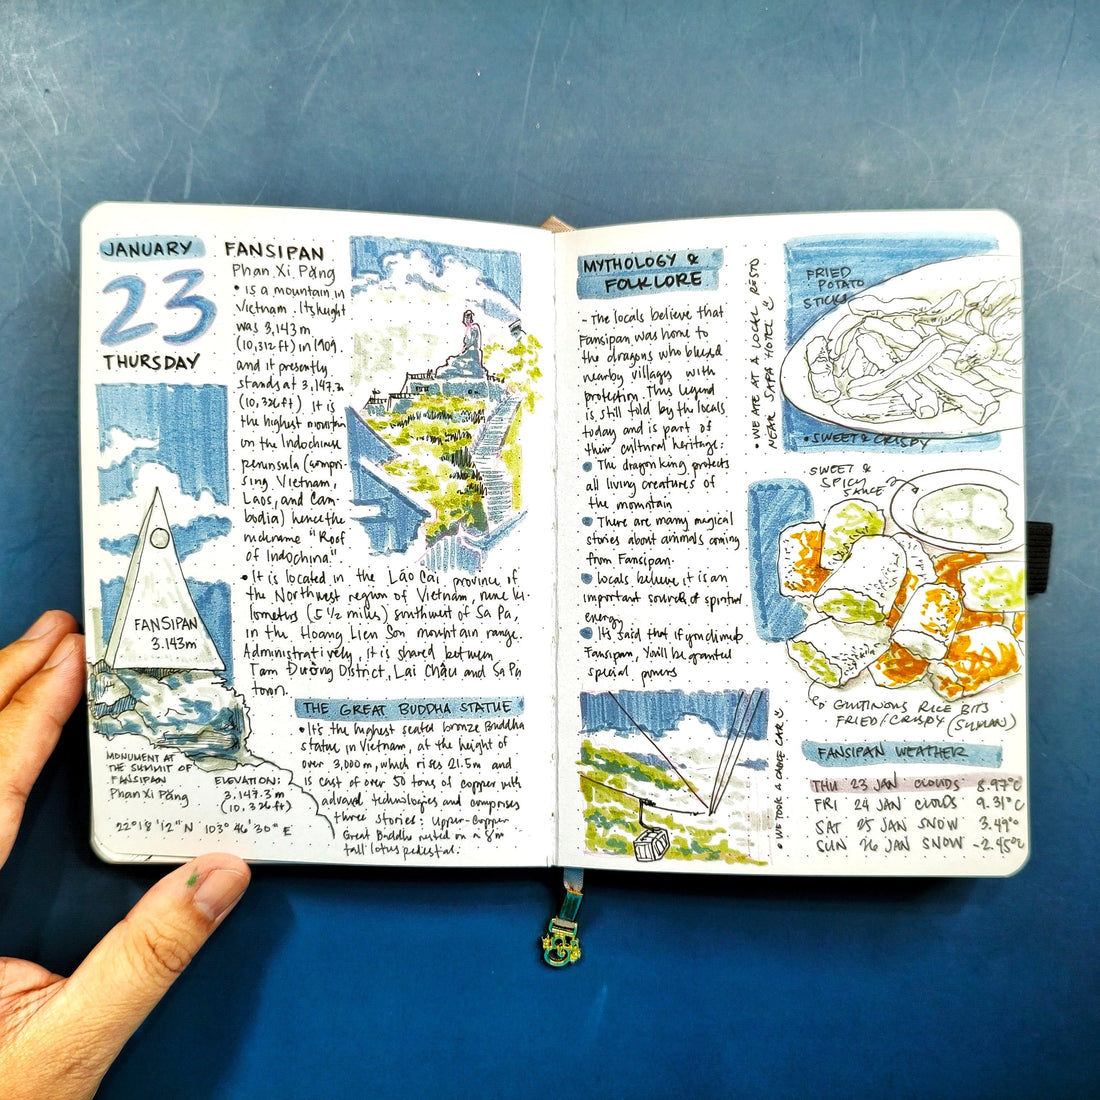 JANUARY
23
THURSDAY
FANSIPAN
3.143m
MONUMENT AT
THE SUMMIT OF
FANSIPAN
Phan Xi Păng
ELEVATION:
3.147.3m
(10,326ft)
22°18'12"N 103°46'30"E
FANSIPAN
Phan Xi Păng
• is a mountain in
Vietnam. Its height
was 3,143 m
(10,312 ft) in 1909.
and it presently
stands at 3,147.3
(10,326ft). It is
the highest mountain
on the Indochinese
peninsula (compri-
sing Vietnam,
Laos, and Cam-
bodia) hence the
nickname "Roof
of Indochina."
• It is located in the Lào Cai province of
the Northwest region of Vietnam, nine ki-
lometers (5 1/2 miles) southwest of Sa Pa,
in the Hoang Lien Son mountain range.
Administratively it is shared between
Tam Đường District, Lai Châu and Sa Pa
town.
THE GREAT BUDDHA STATUE
• It's the highest seated bronze Buddha
statue in Vietnam, at the height of
over 3,000 m, which rises 21.5m and
is cast of over 50 tons of copper with
advanced technologies and comprises
three stories: Upper-Copper
Great Buddha rested on a 8m
tall lotus pedestal.
MYTHOLOGY &
FOLKLORE
- The locals believe that
Fansipan was home to
the dragons who blessed
nearby villages with
protection. This legend
is still told by the locals
today and is part of
their cultural heritage:
The dragon king protects
all living creatures of
the mountain
There are many magical
stories about animals coming
from Fansipan.
locals believe it is an
important source of spiritual
energy
It's said that if you climb
Fansipan, You'll be granted
special powers
• WE TOOK A CABLE CAR
• WE ATE AT A LOCAL RESTO
NEAR SAPA HOTEL
FRIED
POTATO
STICKS
• SWEET & CRISPY
SWEET &
SPICY
SAUCE
GLUTINOUS RICE BITS
FRIED/CRISPY (SUMAN)
FANSIPAN WEATHER
THU 23 JAN CLOUDS 8.97°C
FRI 24 JAN CLOUDS 9.31°C
SAT 25 JAN SNOW 3.49°
SUN 26 JAN SNOW -2.45°C